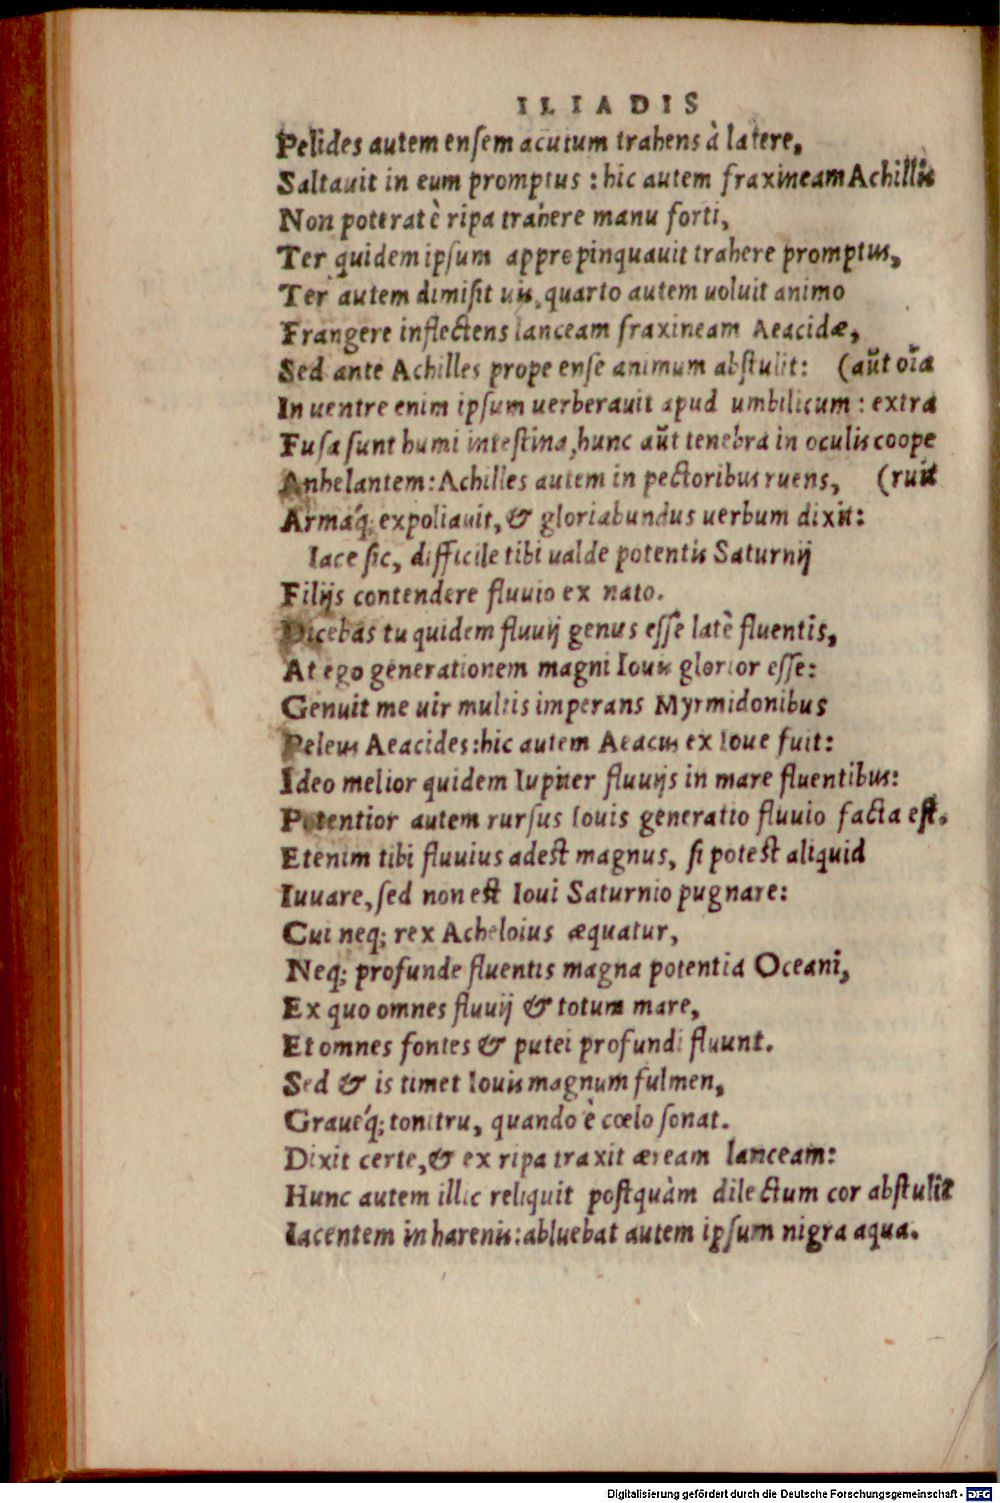 ILIADIS
Pelides autem ensem acutum trahens à latere,
Saltauit in eum promptus : hic autem fraxineam Achillis
Non poterat è ripa trahere manu forti,
Ter quidem ipsum appropinquauit trahere promptus,
Ter autem dimisit uis, quarto autem uoluit animo
Frangere inflectens lanceam fraxineam Aeacidæ,
Sed ante Achilles prope ense animum abstulit: (aūt oīa
In uentre enim ipsum uerberauit apud umbilicum : extra
Fusa sunt humi intestina, hunc aūt tenebra in oculis coope
Anhelantem: Achilles autem in pectoribus ruens, (ruit
Armáq; expoliauit, & gloriabundus uerbum dixit:
Iace sic, difficile tibi ualde potentis Saturnij
Filijs contendere fluuio ex nato.
Dicebas tu quidem fluuij genus esse latè fluentis,
At ego generationem magni Iouis glorior esse:
Genuit me uir multis imperans Myrmidonibus
Peleus Aeacides: hic autem Aeacus ex Ioue fuit:
Ideo melior quidem Iupiter fluuijs in mare fluentibus:
Potentior autem rursus Iouis generatio fluuio facta est.
Etenim tibi fluuius adest magnus, si potest aliquid
Iuuare, sed non est Ioui Saturnio pugnare:
Cui neq; rex Acheloius æquatur,
Neq; profunde fluentis magna potentia Oceani,
Ex quo omnes fluuij & totum mare,
Et omnes fontes & putei profundi fluunt.
Sed & is timet Iouis magnum fulmen,
Graueq́; tonitru, quando è cœlo sonat.
Dixit certe, & ex ripa traxit æream lanceam:
Hunc autem illic reliquit postquàm dilectum cor abstulit
Iacentem in harenis: abluebat autem ipsum nigra aqua.
Digitalisierung gefördert durch die Deutsche Forschungsgemeinschaft - DFG